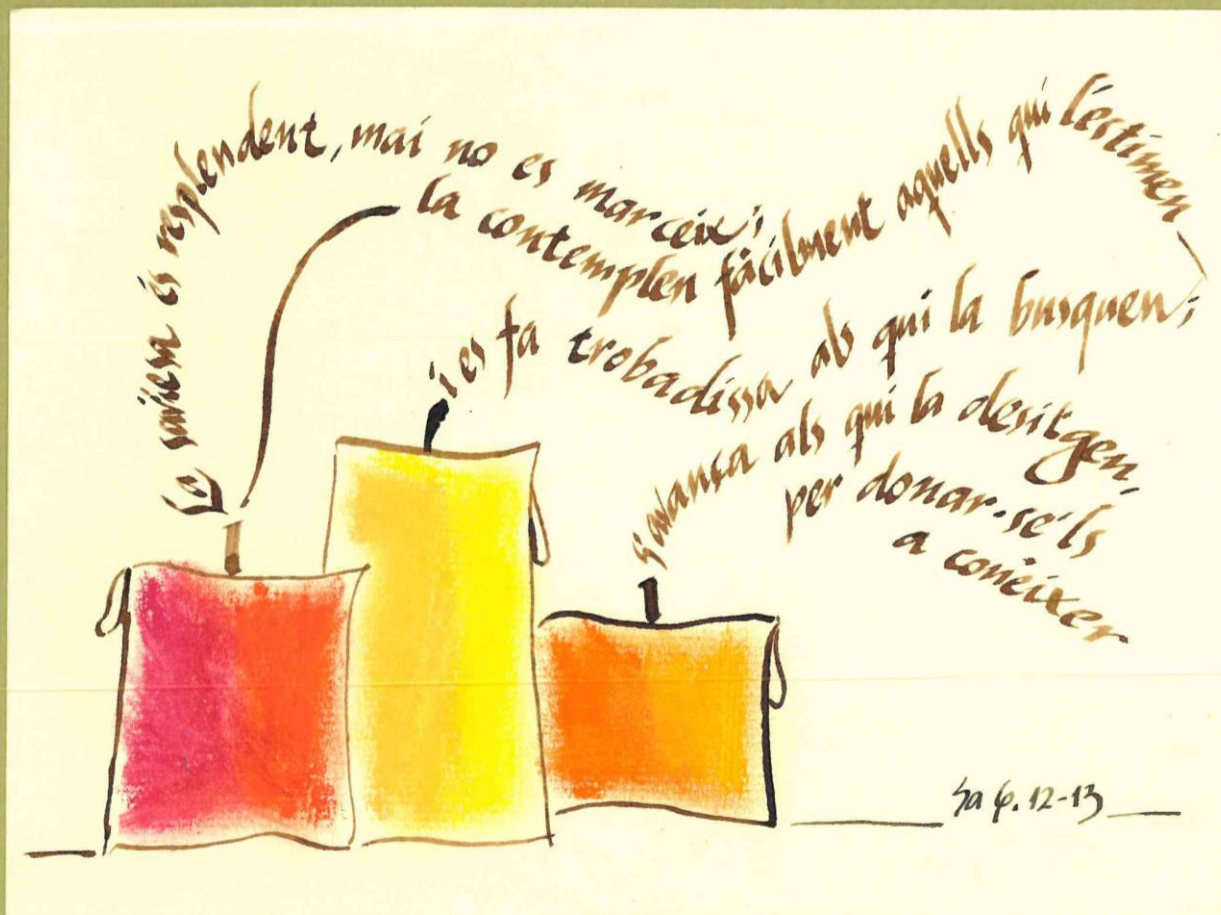 La saviesa és resplendent, mai no es marceix;
la contemplen fàcilment aquells qui l'estimen
i es fa trobadissa als qui la busquen;
s'avança als qui la desitgen,
per donar-se'ls
a conèixer
Sa 6. 12-13